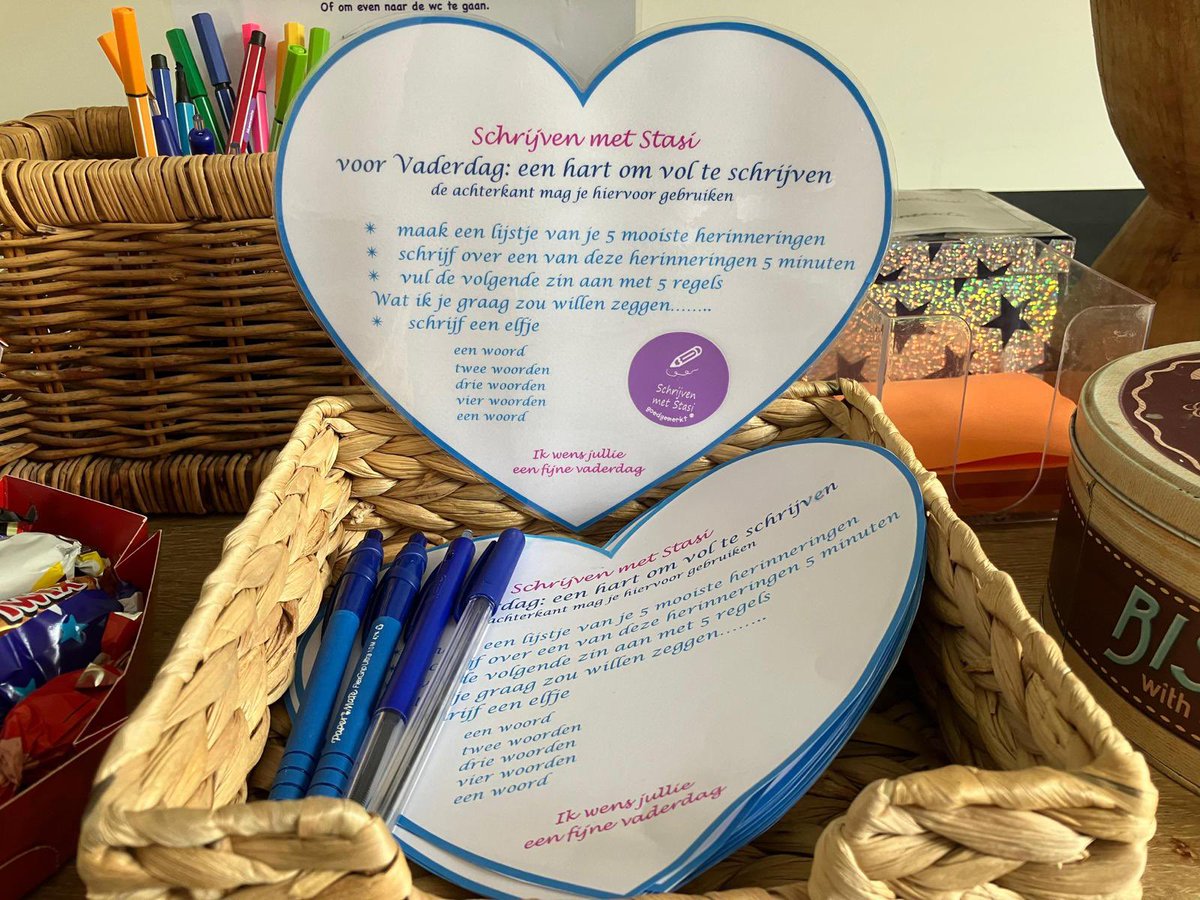 Of om even naar de wc te gaan.
Schrijven met Stasi
voor Vaderdag: een hart om vol te schrijven
de achterkant mag je hiervoor gebruiken
* maak een lijstje van je 5 mooiste herinneringen
* schrijf over een van deze herinneringen 5 minuten
* vul de volgende zin aan met 5 regels
Wat ik je graag zou willen zeggen........
* schrijf een elfje
een woord
twee woorden
drie woorden
vier woorden
een woord
Schrijven
met Stasi
goedgemerkt
Ik wens jullie
een fijne vaderdag
Schrijven met Stasi
dag: een hart om vol te schrijven
achterkant mag je hiervoor gebruiken
een lijstje van je 5 mooiste herinneringen
over een van deze herinneringen 5 minuten
volgende zin aan met 5 regels
je graag zou willen zeggen........
een elfje
een woord
twee woorden
drie woorden
vier woorden
een woord
Ik wens jullie
een fijne vaderdag
PAPER MATE
Twix
BIS
with